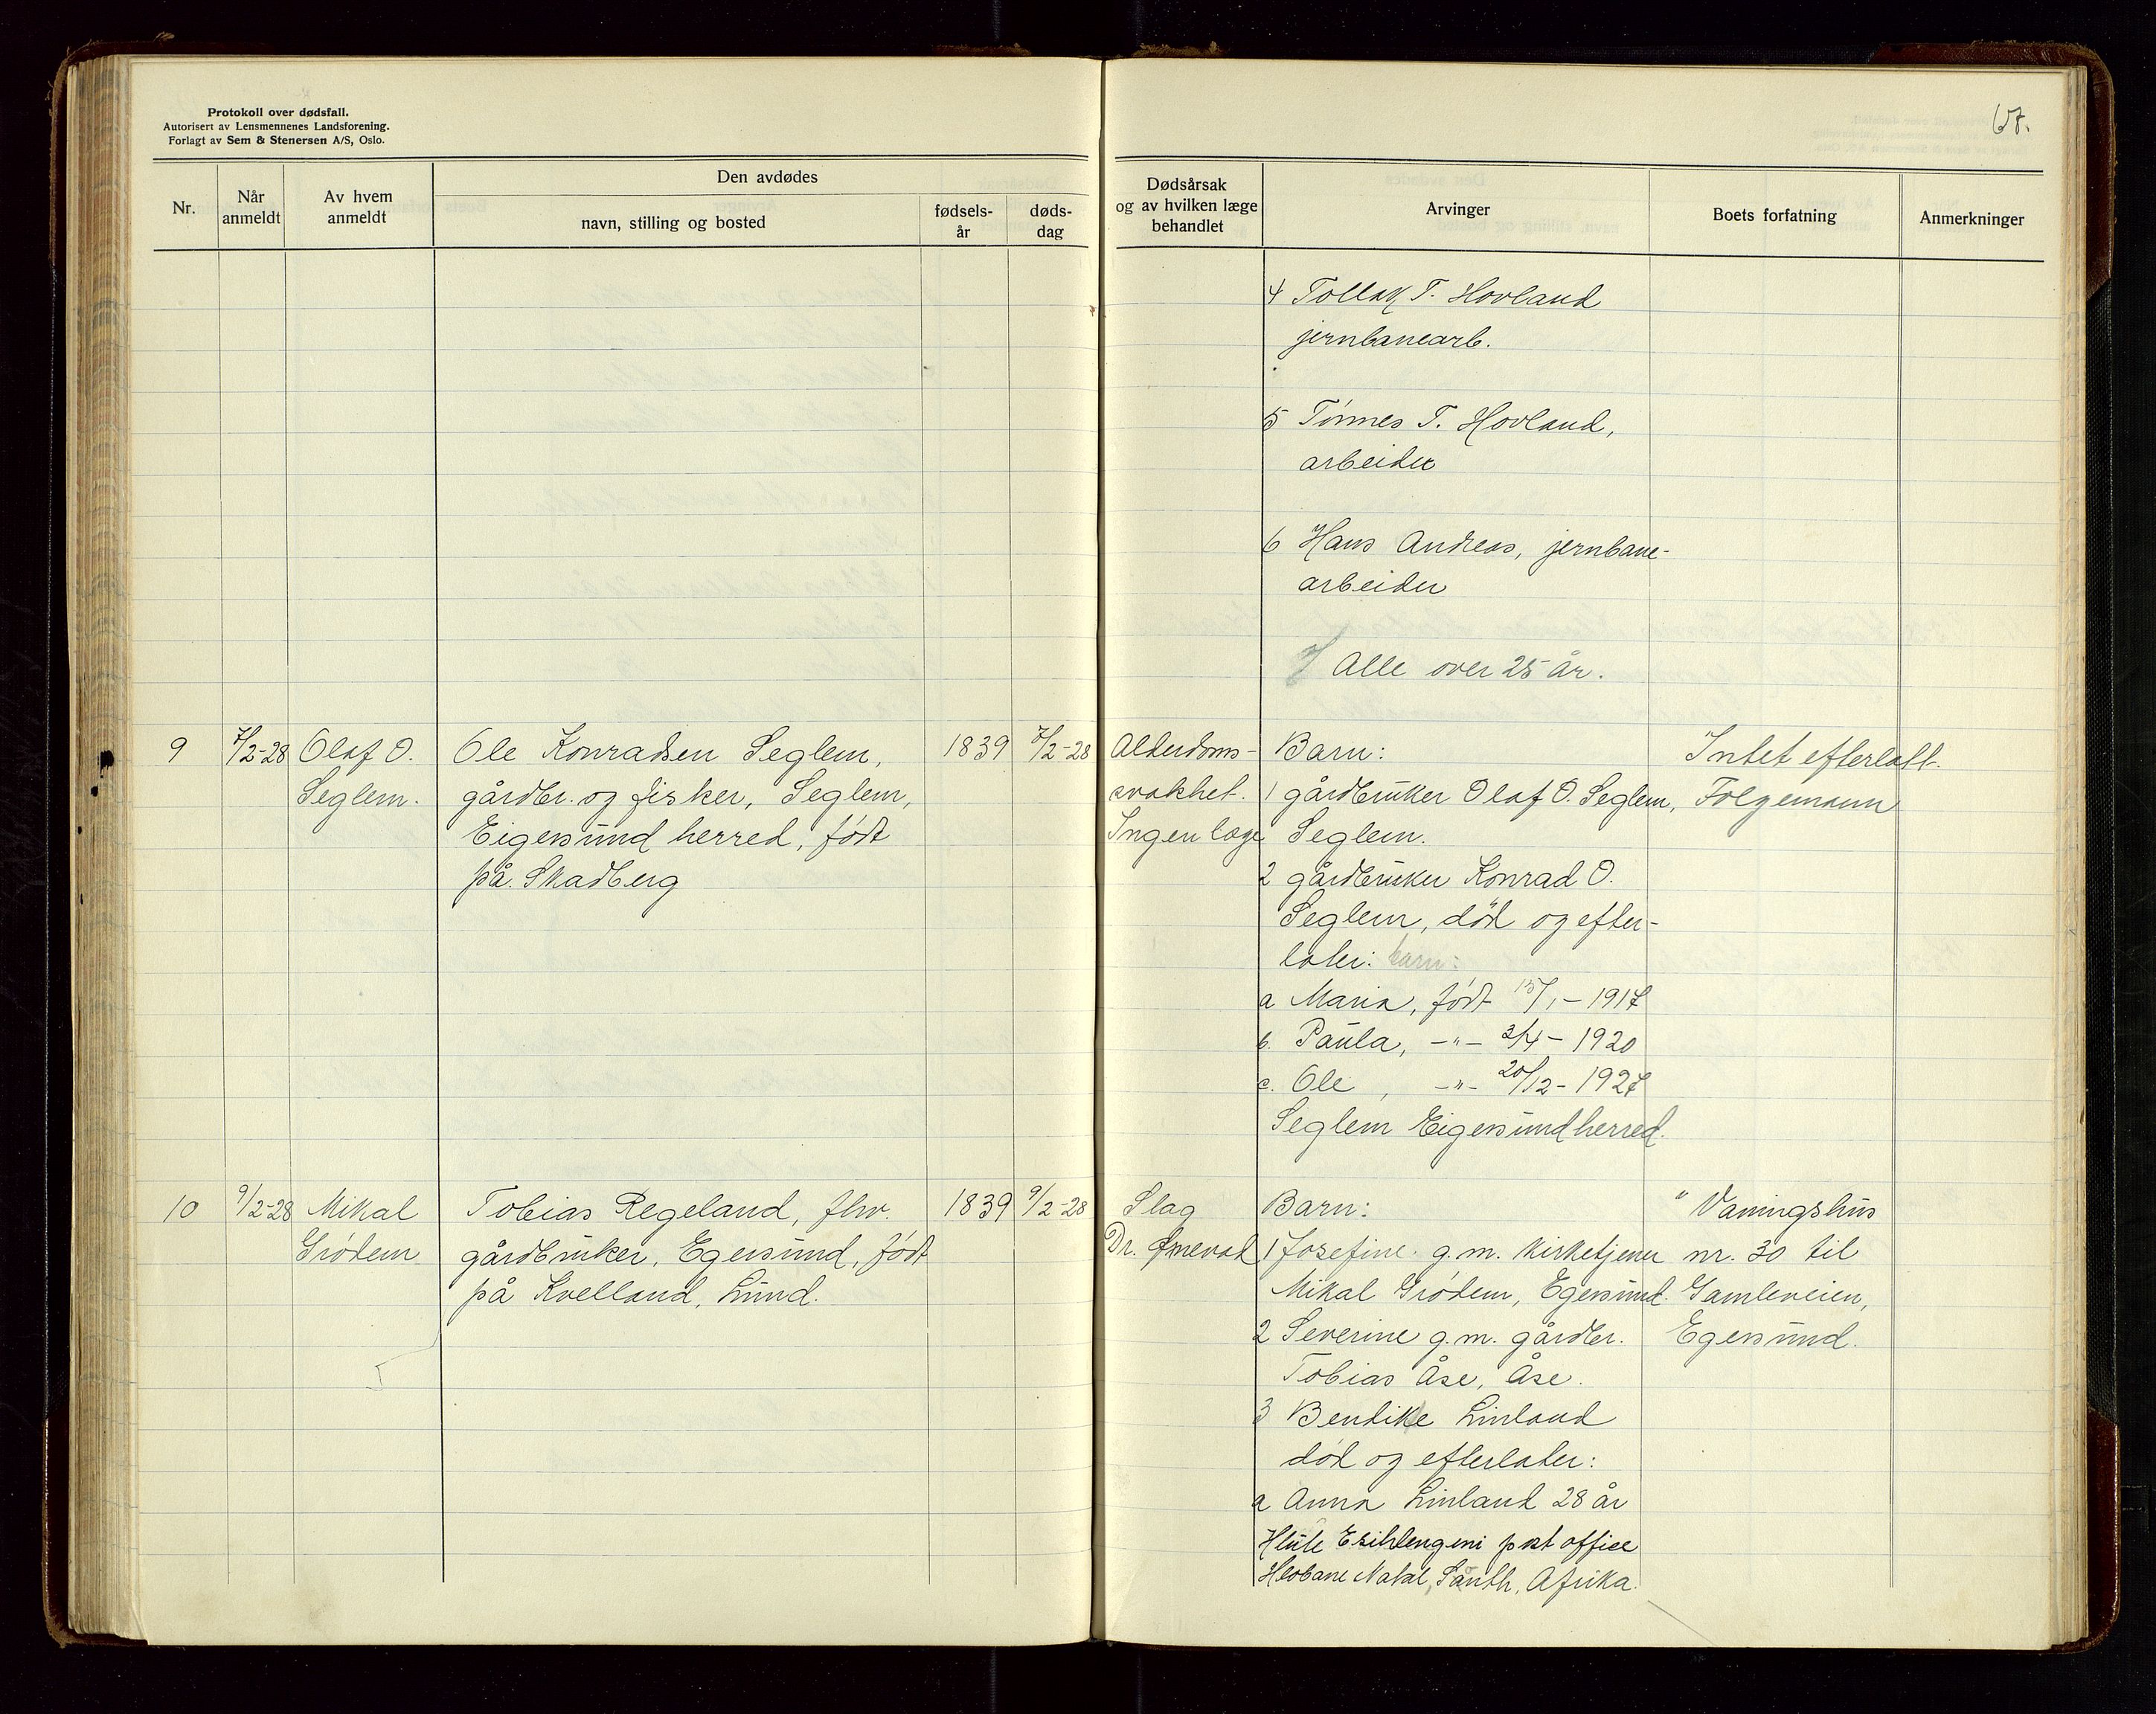 Protokoll over dødsfall.
Autorisert av Lensmennenes Landsforening.
Forlagt av Sem & Stenersen A/S, Oslo.
67.
Nr.
Når anmeldt
Av hvem anmeldt
Den avdødes
navn, stilling og bosted
fødsels-år
døds-dag
Dødsårsak og av hvilken læge behandlet
Arvinger
Boets forfatning
Anmerkninger
4 Tollak T. Hovland
jernbanearb.
5 Tönnes T. Hovland,
arbeider
6 Hans Andreas, jernbane-
arbeider
Alle over 25 år.
9
7/2-28
Olaf O.
Seglem.
Ole Konradsen Seglem,
gårdbr. og fisker, Seglem,
Eigersund herred, födt
på Skadberg
1839
7/2-28
Alderdoms-
svakhet.
Ingen læge
Barn:
1 gårdbruker Olaf O. Seglem,
Seglem.
2 gårdbruker Konrad O.
Seglem, död og efter-
later: barn:
a Maria, födt 15/1-1917
b. Paula, -"- 3/4-1920
c. Ole, -"- 20/12-1927
Seglem Eigersund herred.
Intet efterlatt.
Folgemann
10
9/2-28
Mikal
Grödem
Tobias Regeland, fhv.
gårdbruker, Egersund, födt
på Kvelland, Lund.
1839
9/2-28
Slag
Dr.
Barn:
1 Josefine g.m. kirketjener
Mikal Grödem, Egersund.
2 Severine g.m. gårdbr.
Tobias Åse, Åse.
3 Bendikke Linland
död og efterlater:
a Anna Linland 28 år
Esihlengeni post office
Hlobane Natal, South, Afrika.
" Vaningshus
nr. 30 til
Gamleveien,
Egersund.